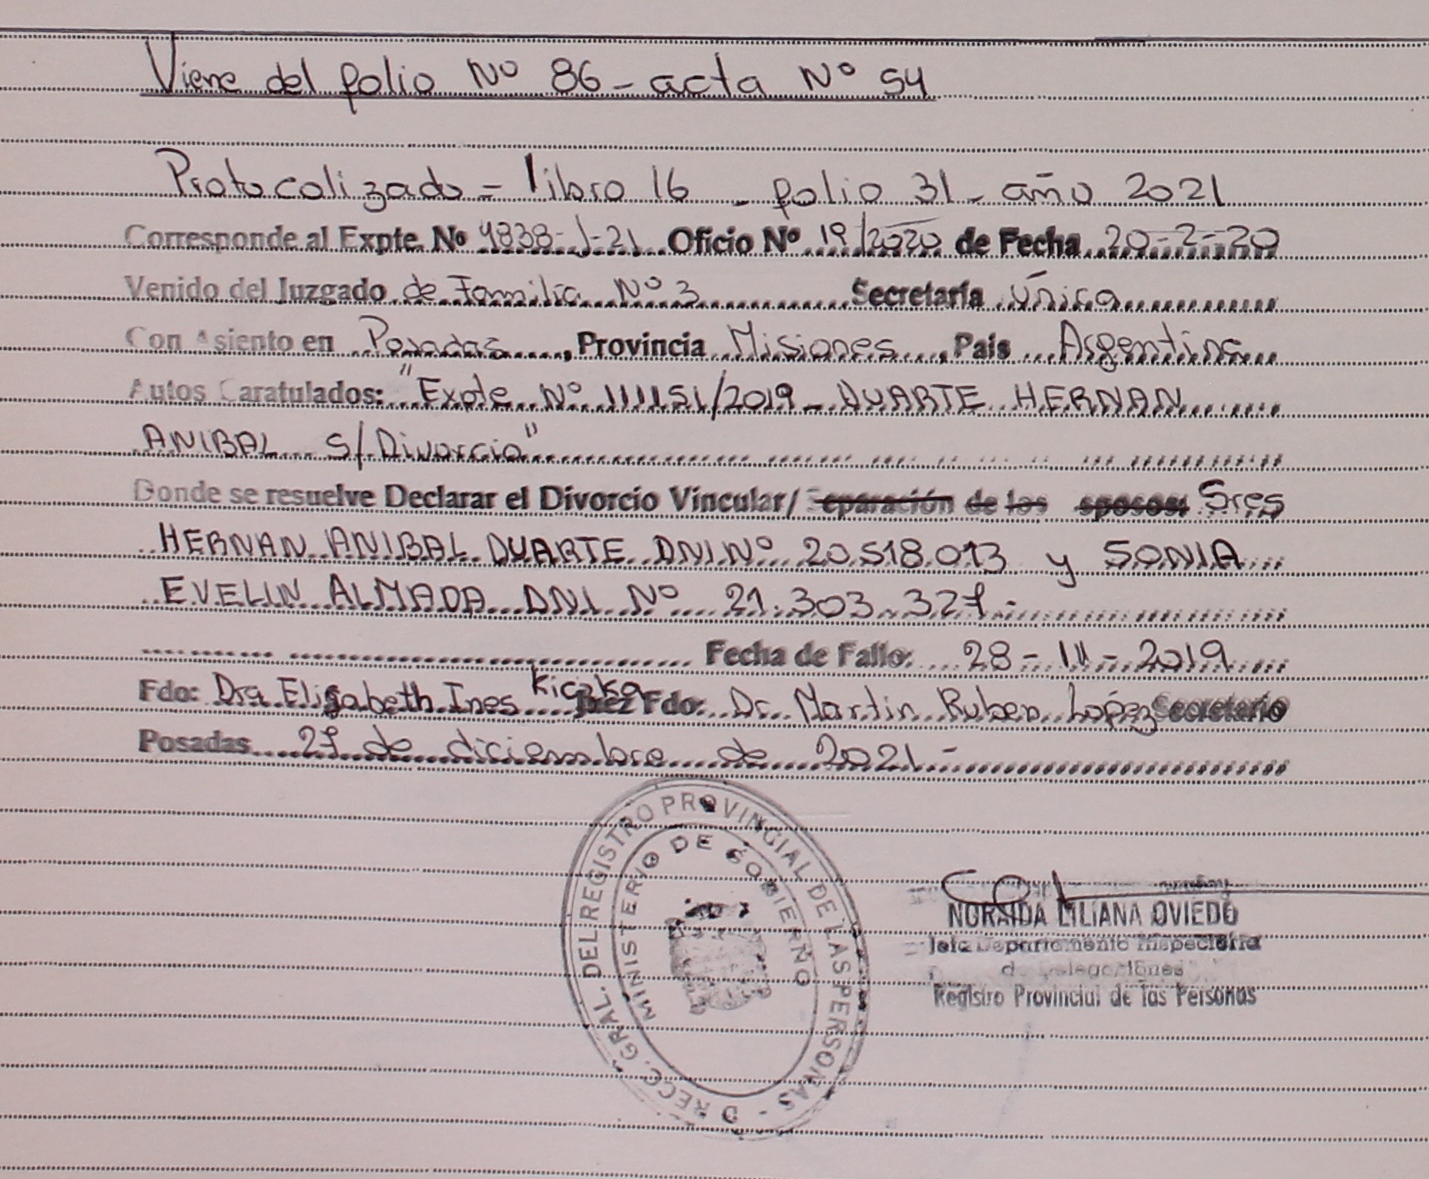 Viene del folio Nº 86 - acta Nº 54
Protocalizado = libro 16 - folio 31 - año 2021
Corresponde al Expte. Nº 4838-J-21 Oficio Nº 19/2020 de Fecha 20-2-20
Venido del Juzgado de Familia Nº 3 Secretaría Única
Con Asiento en Posadas, Provincia Misiones, País Argentina
Autos Caratulados: "Expte Nº 111151/2019 - DUARTE HERNAN
ANIBAL s/Divorcio"
Donde se resuelve Declarar el Divorcio Vincular/ Separación de los esposos: Sres
HERNAN ANIBAL DUARTE DNI Nº 20.518.013 y SONIA
EVELIN ALMADA DNI Nº 21.303.327.-
Fecha de Fallo: 28-11-2019
Fdo: Dra Elisabeth Ines Kiczka Juez Fdo: Dr. Martin Ruben López Secretario
Posadas 27 de diciembre de 2021.-
DIRECC. GRAL. DEL REGISTRO PROVINCIAL DE LAS PERSONAS -
MINISTERIO DE GOBIERNO
LILIANA OVIEDO
Jefa Departamento Inspectoría
de Delegaciones
Registro Provincial de las Personas